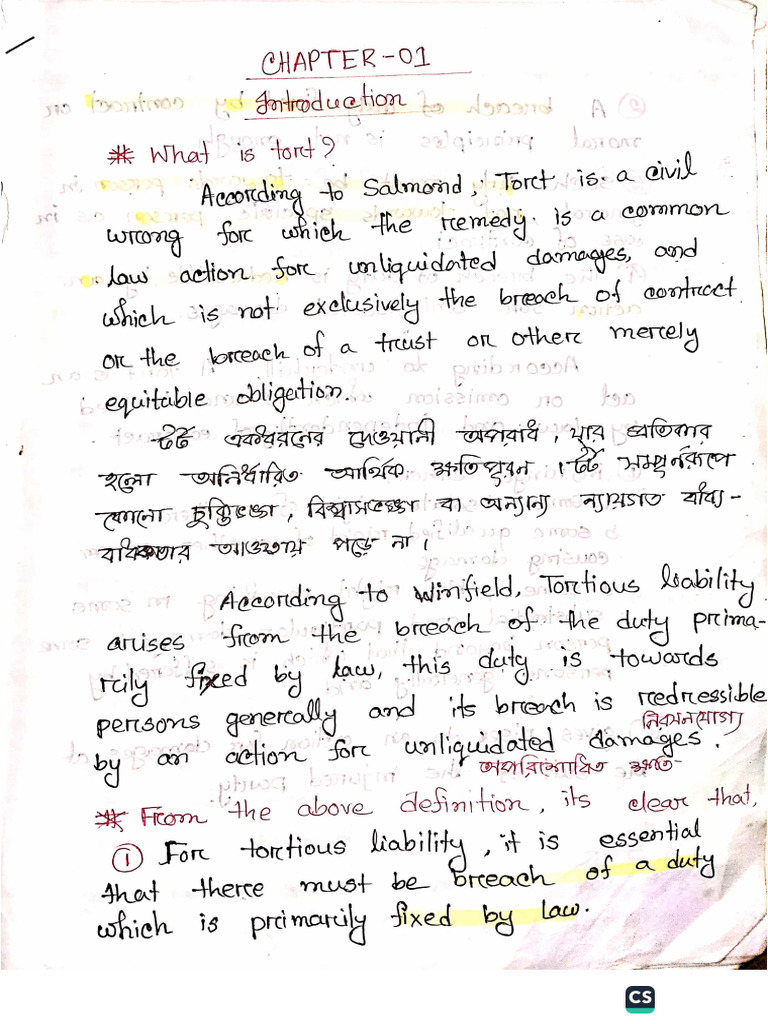 CHAPTER-01
Introduction
* What is tort?
According to Salmond, Tort is a civil
wrong for which the remedy is a common
law action for unliquidated damages, and
which is not exclusively the breach of contract
or the breach of a trust or other merely
equitable obligation.
টর্ট একধরনের দেওয়ানী অপরাধ, যার প্রতিকার
হলো অনির্ধারিত আর্থিক ক্ষতিপূরন। টর্ট সম্পূর্নরূপে
কোনো চুক্তিভঙ্গ, বিশ্বাসভঙ্গ বা অন্যান্য ন্যায়গত বাধ্য-
বাধকতার আওতায় পড়ে না।
According to Winfield, Tortious liability
arises from the breach of the duty prima-
rily fixed by law, this duty is towards
persons generally and its breach is redressible
নিরসনযোগ্য
by an action for unliquidated damages.
অপরিশোধিত ক্ষতি
* From the above definition, its clear that,
① For tortious liability, it is essential
that there must be breach of a duty
which is primarily fixed by law.
CS